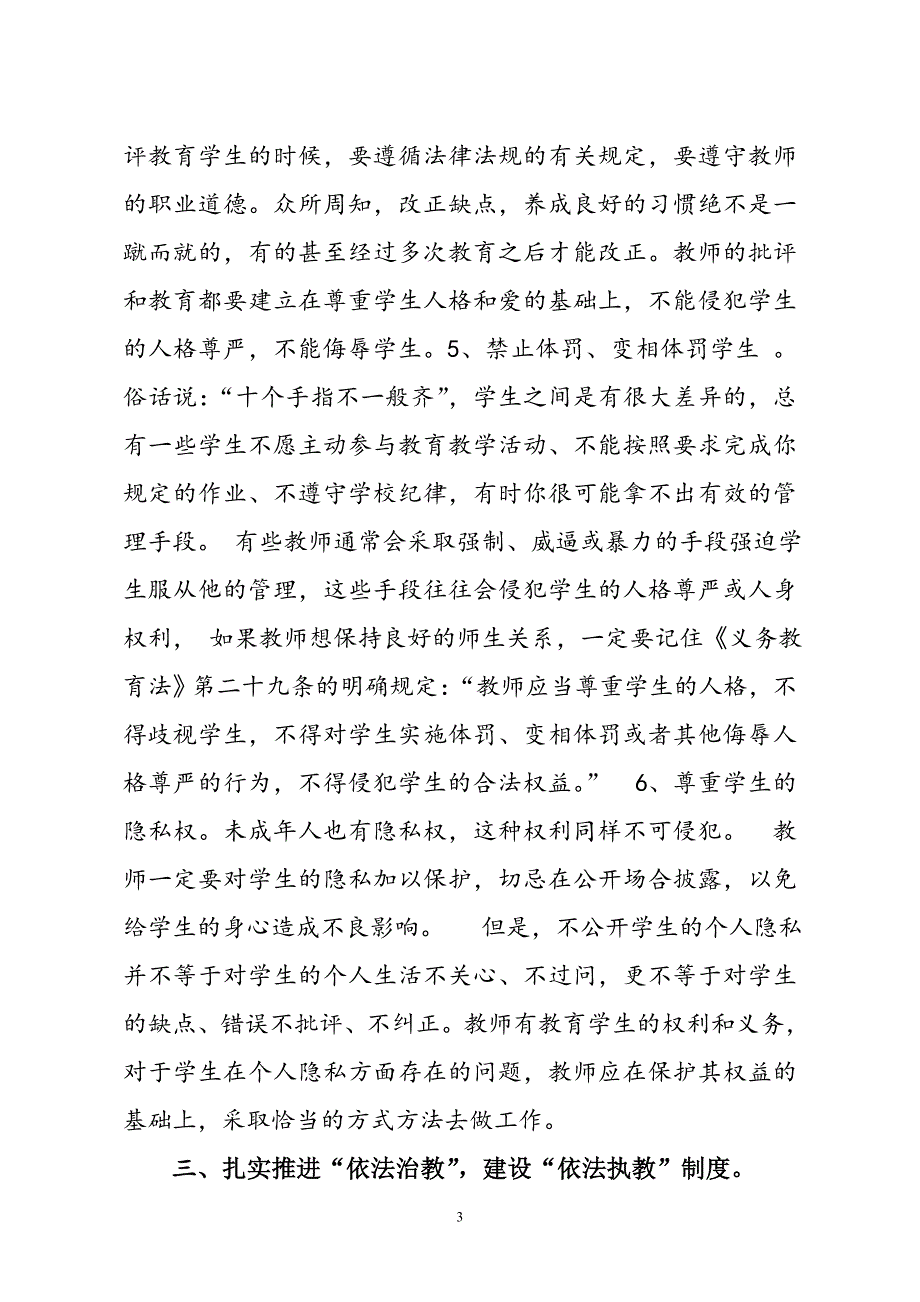 评教育学生的时候，要遵循法律法规的有关规定，要遵守教师
的职业道德。众所周知，改正缺点，养成良好的习惯绝不是一
蹴而就的，有的甚至经过多次教育之后才能改正。教师的批评
和教育都要建立在尊重学生人格和爱的基础上，不能侵犯学生
的人格尊严，不能侮辱学生。5、禁止体罚、变相体罚学生 。
俗话说：“十个手指不一般齐”，学生之间是有很大差异的，总
有一些学生不愿主动参与教育教学活动、不能按照要求完成你
规定的作业、不遵守学校纪律，有时你很可能拿不出有效的管
理手段。 有些教师通常会采取强制、威逼或暴力的手段强迫学
生服从他的管理，这些手段往往会侵犯学生的人格尊严或人身
权利， 如果教师想保持良好的师生关系，一定要记住《义务教
育法》第二十九条的明确规定：“教师应当尊重学生的人格，不
得歧视学生，不得对学生实施体罚、变相体罚或者其他侮辱人
格尊严的行为，不得侵犯学生的合法权益。” 6、尊重学生的
隐私权。未成年人也有隐私权，这种权利同样不可侵犯。 教
师一定要对学生的隐私加以保护，切忌在公开场合披露，以免
给学生的身心造成不良影响。 但是，不公开学生的个人隐私
并不等于对学生的个人生活不关心、不过问，更不等于对学生
的缺点、错误不批评、不纠正。教师有教育学生的权利和义务，
对于学生在个人隐私方面存在的问题，教师应在保护其权益的
基础上，采取恰当的方式方法去做工作。
三、扎实推进“依法治教”，建设“依法执教”制度。
3